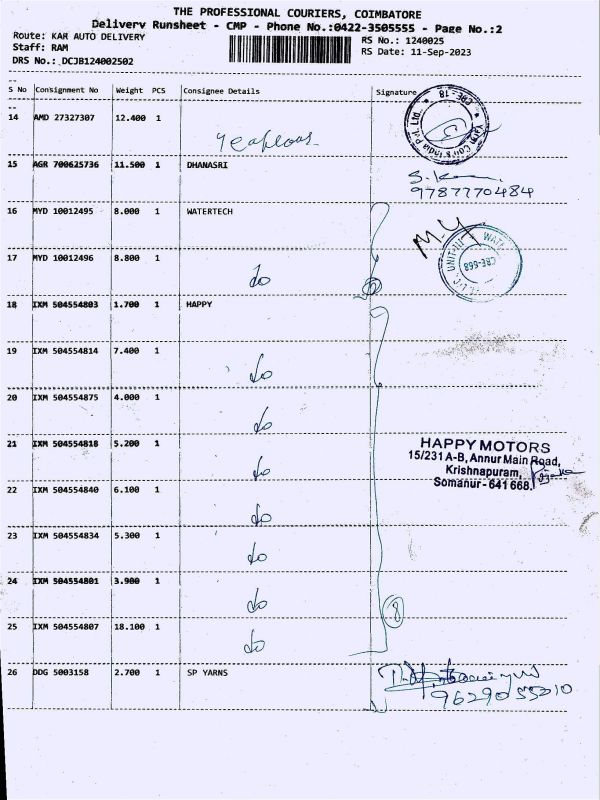 THE PROFESSIONAL COURIERS, COIMBATORE
Delivery Runsheet - CMP - Phone No.:0422-3505555 - Page No.:2
Route: KAR AUTO DELIVERY
RS No.: 1240025
Staff: RAM
RS Date: 11-Sep-2023
DRS No.: DCJB124002502
S No Consignment No Weight PCS Consignee Details Signature
14 AMD 27327307 12.400 1
15 AGR 700625736 11.500 1 DHANASRI
9787770484
16 MYD 10012495 8.000 1 WATERTECH
M.Y
17 MYD 10012496 8.800 1 do
CBE-668
18 IXM 504554803 1.700 1 HAPPY
19 IXM 504554814 7.400 1 do
20 IXM 504554875 4.000 1 do
21 IXM 504554818 5.200 1 do
HAPPY MOTORS
15/231 A-B, Annur Main Road,
Krishnapuram,
Somanur - 641 668.
22 IXM 504554840 6.100 1 do
23 IXM 504554834 5.300 1 do
24 IXM 504554801 3.900 1 do
8
25 IXM 504554807 18.100 1 do
26 DDG 5003158 2.700 1 SP YARNS